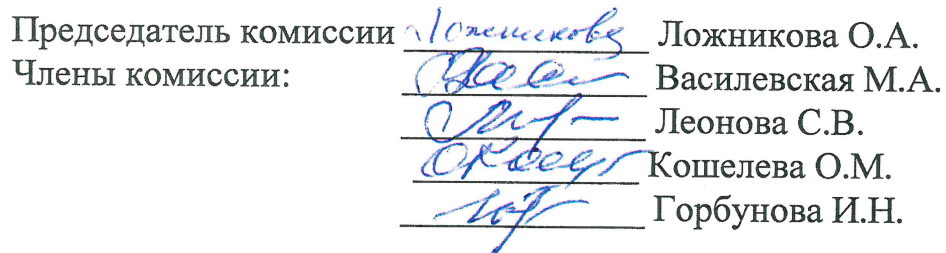 Председатель комиссии Ложникова Ложникова О.А.
Члены комиссии: Василевская М.А.
Леонова С.В.
Кошелева О.М.
Горбунова И.Н.